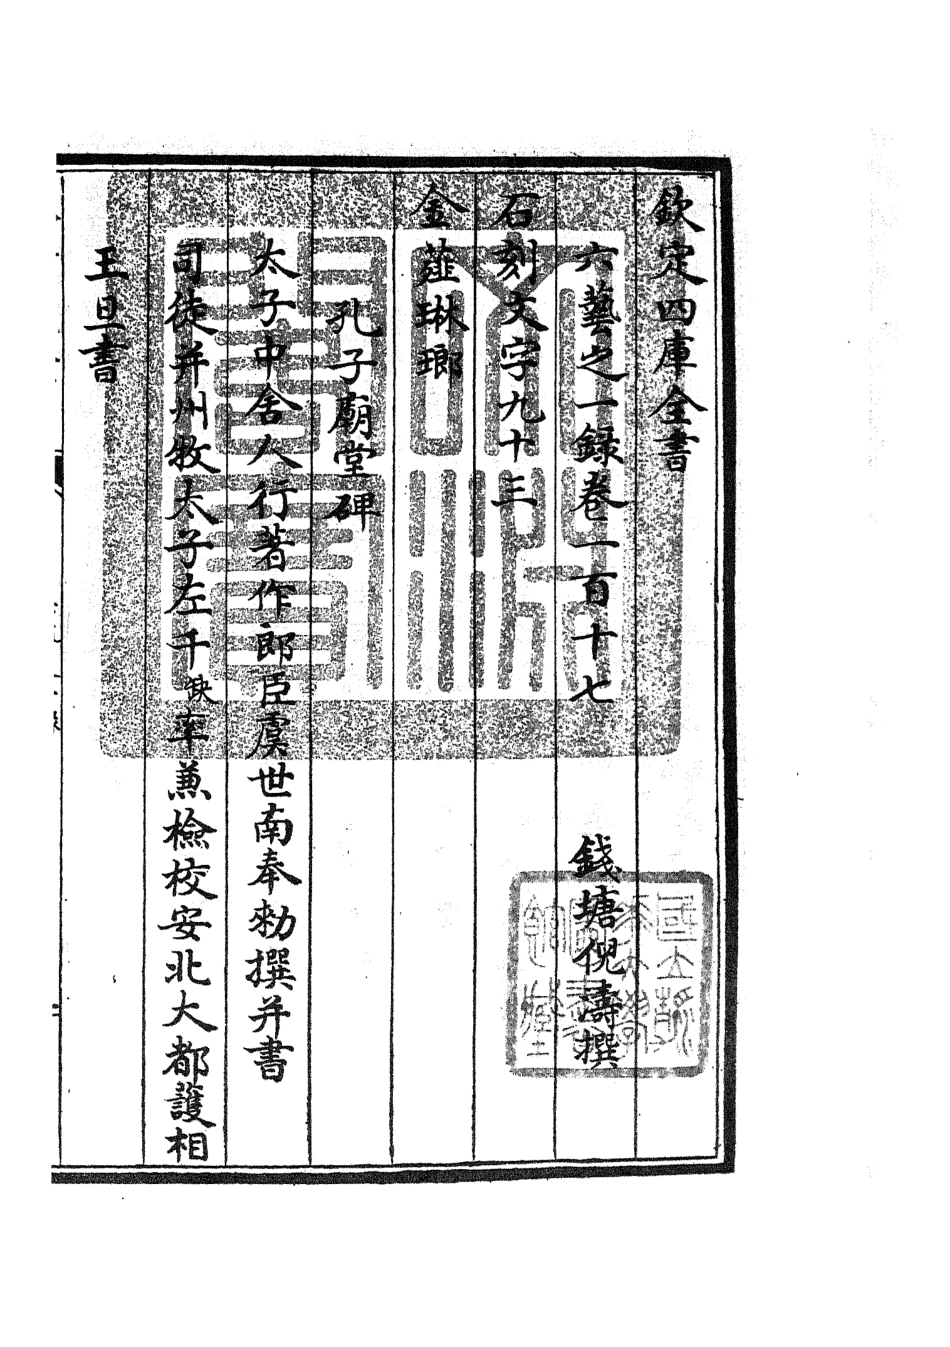 欽定四庫全書
六藝之一録卷一百十七
錢塘倪濤撰
石刻文字九十三
金薤琳瑯
孔子廟堂碑
太子中舍人行著作郎臣虞世南奉勑撰并書
司徒并州牧太子左千缺率兼檢校安北大都護相
王旦書